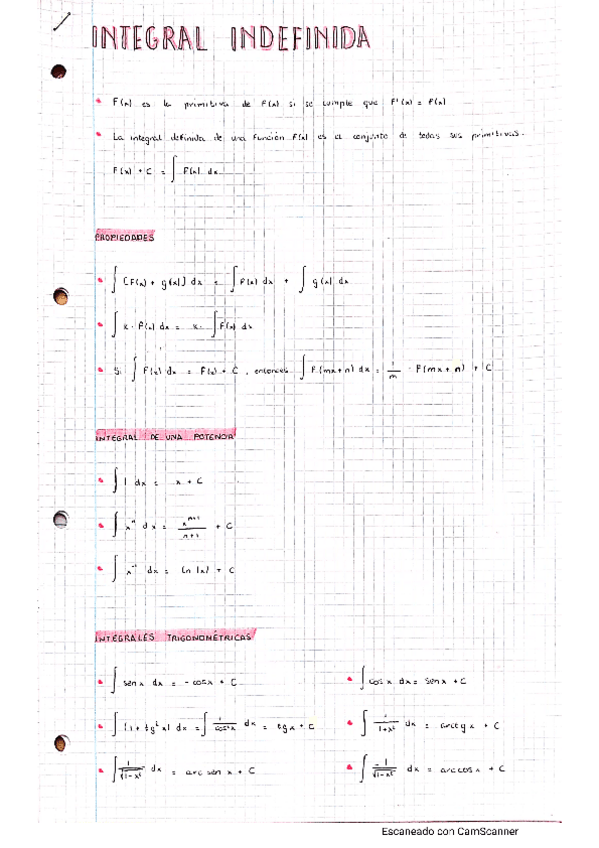 INTEGRAL INDEFINIDA
• F(x) es la primitiva de f(x) si se cumple que F'(x) = f(x)
• La integral definida de una función f(x) es el conjunto de todas sus primitivas.
F(x) + C = ∫ f(x) dx
PROPIEDADES
• ∫ [f(x) + g(x)] dx = ∫ f(x) dx + ∫ g(x) dx
• ∫ k · f(x) dx = k · ∫ f(x) dx
• Si ∫ f(x) dx = F(x) + C, entonces ∫ f(mx + n) dx = 1/m · F(mx + n) + C
INTEGRAL DE UNA POTENCIA
• ∫ 1 dx = x + C
• ∫ xⁿ dx = xⁿ⁺¹/n+1 + C
• ∫ x⁻¹ dx = ln |x| + C
INTEGRALES TRIGONOMÉTRICAS
• ∫ sen x dx = - cos x + C • ∫ cos x dx = sen x + C
• ∫ (1 + tg² x) dx = ∫ 1/cos² x dx = tg x + C • ∫ 1/1+x² dx = arctg x + C
• ∫ 1/√1-x² dx = arc sen x + C • ∫ -1/√1-x² dx = arccos x + C
Escaneado con CamScanner